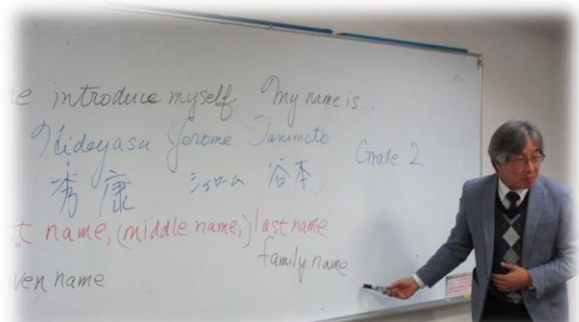 e introduce myself My name is...
Hideyasu Jerome Tanimoto Grade 2
秀康 ジェローム 谷本
t name, (middle name,) last name
family name
ven name